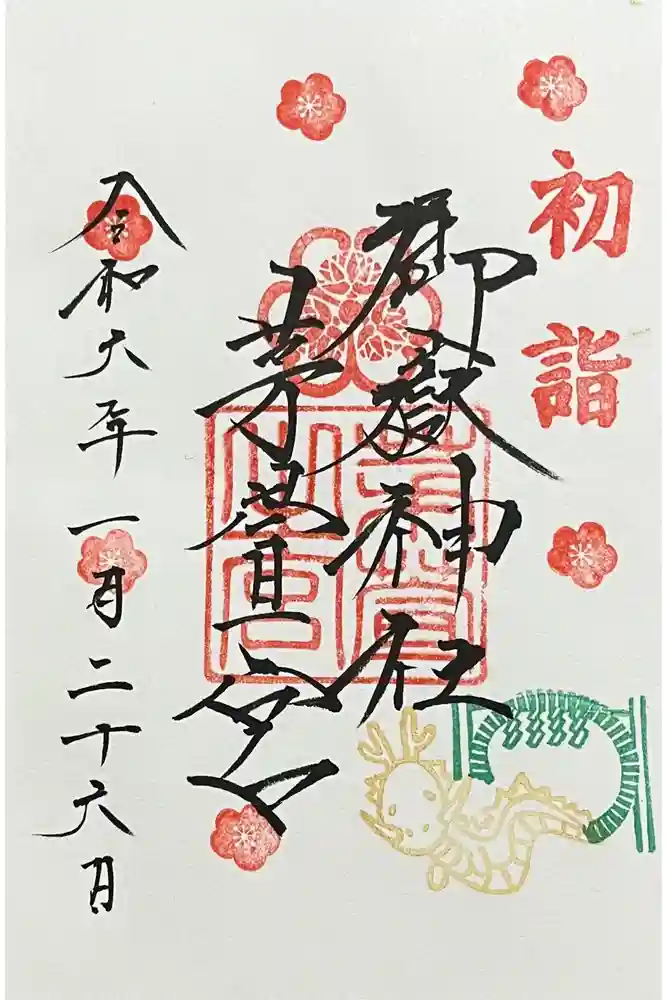 初詣
御嶽神社
茅萱宮
令和六年一月二十六日